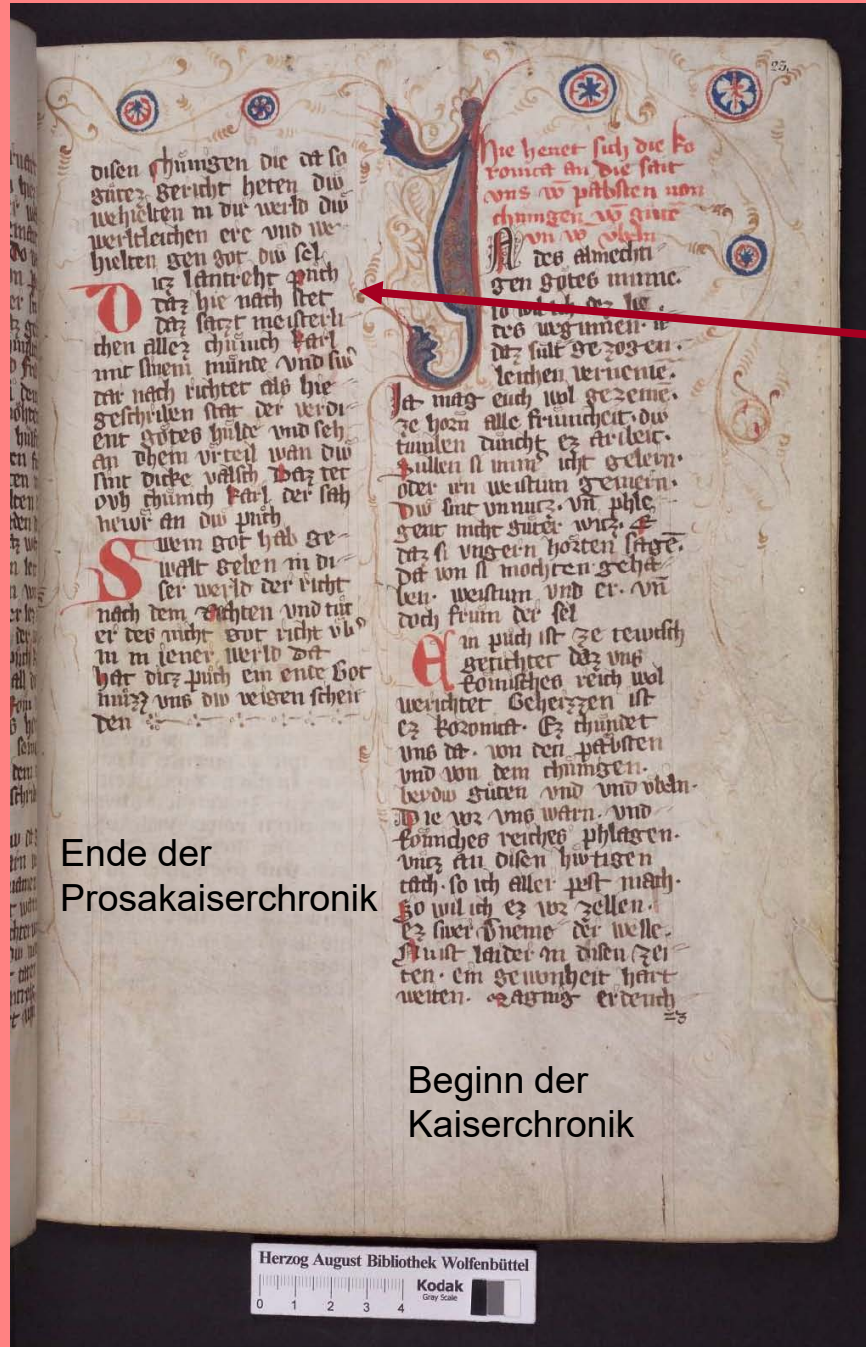 23.
disen chunigen die da so
gutez gericht heten diw
wehielten in dir werld diw
werltleichen ere vnd we
hielten gen got diw sel
Ditz lantreht puch
daz hie nach stet
daz satzt meisterli
chen allez chunich karl
mit sinem munde vnd swer
dar nach richtet als hie
geschriben stat der verdi
ent gotes hulde vnd seh
an dhem vrteil wan diw
sint dicke valsch Daz tet
ovh chunich karl der sah
newr an diw puch
Swem got hab ge
walt geben in di
ser werld der richt
nach dem rechten vnd tut
er des nicht got richt vb
in in iener werld Da
hat ditz puch ein ende Got
muzz vns diw veigen schei
den
Hie hevet sich die ko
ronica an die sait
vns von pabsten von
chunigen
In des almechti
gen gotes minne.
so wil ich ez hie
des weginnen. ir
daz sult gezogen
leichen vernemē.
Ja mag euch wol gezemē.
ze horn alle frumcheit. diw
tumben duncht ez aribeit.
Sullen si immer icht gelern.
oder irn weistum gemern.
Diw sint vnnutz. vn phle
gent nicht guter witz.
daz si vngern horten sagē.
Da von si mochten geha
ben. weistum vnd er. vn
doch frum der sel
Ein puch ist ze tewtsch
getichtet daz vns
Romisches reich wol
werichtet Geheizzen ist
ez koronica. Ez chundet
vns da. von den pabsten
vnd von dem chunigen.
bediw guten vnd vnd vbeln.
Die vor vns warn. vnd
Romiches reiches phlagen.
vntz an disen hiwtigen
tach. so ich aller pest mach.
So wil ich ez vor zellen.
ez swer vneme der welle.
Nu ist laider in disen zei
ten. ein gewonheit hart
weiten. erdench
23
Ende der
Prosakaiserchronik
Beginn der
Kaiserchronik
Herzog August Bibliothek Wolfenbüttel
Kodak
Gray Scale
0 1 2 3 4